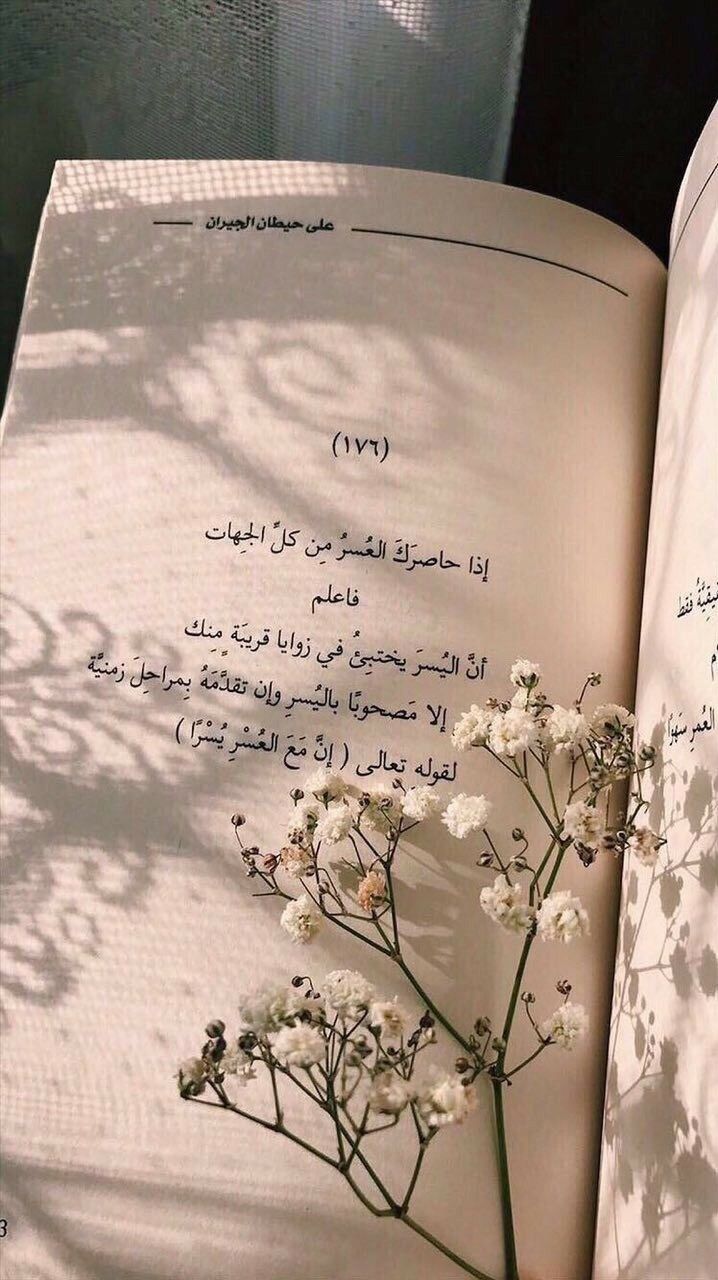 على حيطان الجيران
(١٧٦)
إذا حاصرَكَ العُسرُ مِن كلِّ الجِهات
فاعلم
أنَّ اليُسرَ يختبِئُ في زوايا قريبَة مِنِك
إلا مَصحوبًا باليُسرِ وإن تقدَّمَهُ بِمراحِلَ زمنيَّة
لقوله تعالى ( إنَّ مَعَ العُسْرِ يُسْرًا )
فقط
العُمرِ سَهوًا
3